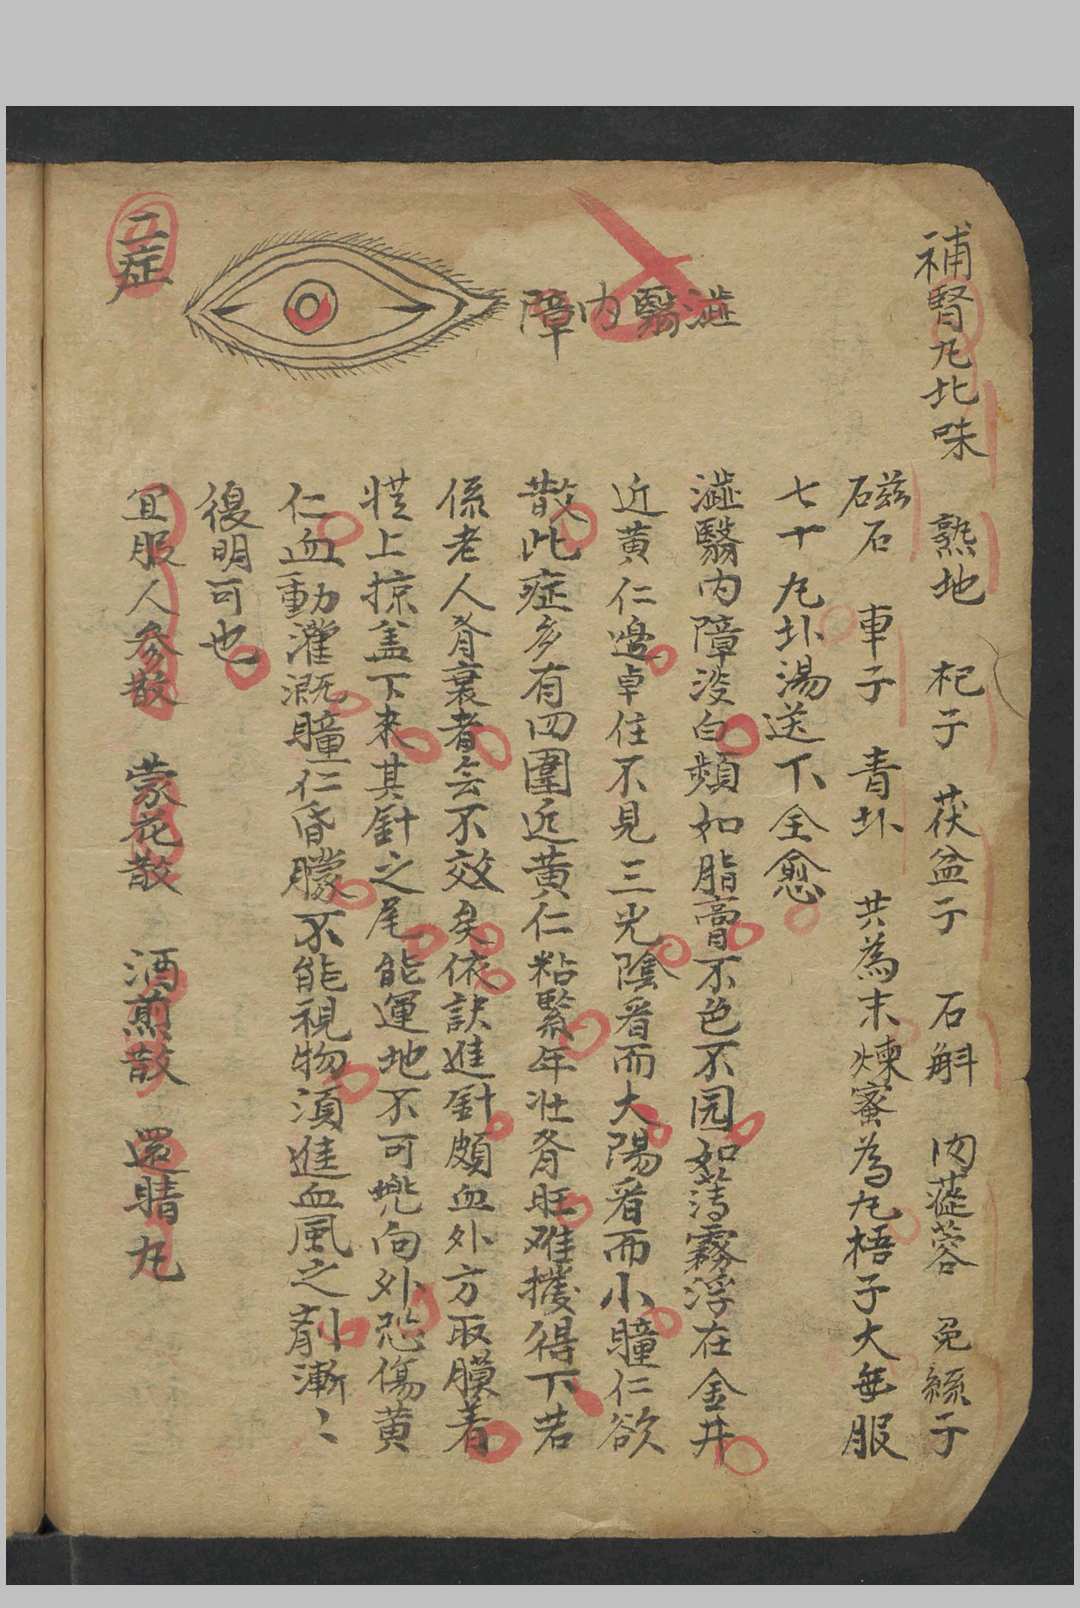 補腎九北味 熟地 杞子 茯盆子 石斛 肉蓯蓉 免絲子
磁石 車子 青圤 共為末煉蜜為九梧子大每服
七十九圤湯送下全愈
澁翳內障
澁翳內障淡白頻如脂膏不色不园如薄霧浮在金井
近黃仁邊卓住不見三光陰看而大陽看而小瞳仁欲
散此症多有四圍近黃仁粘緊年壮脊旺难撥得下若
係老人脊衰者会不效矣依訣進針頗血外方取膜着
挺上掠盖下来其針之尾能運地不可兜向外恐傷黃
仁血動灌溉瞳仁昏朦不能視物須進血風之剤漸〻
復明可也
二症
宜服人參散 蒙花散 酒煎散 還睛九